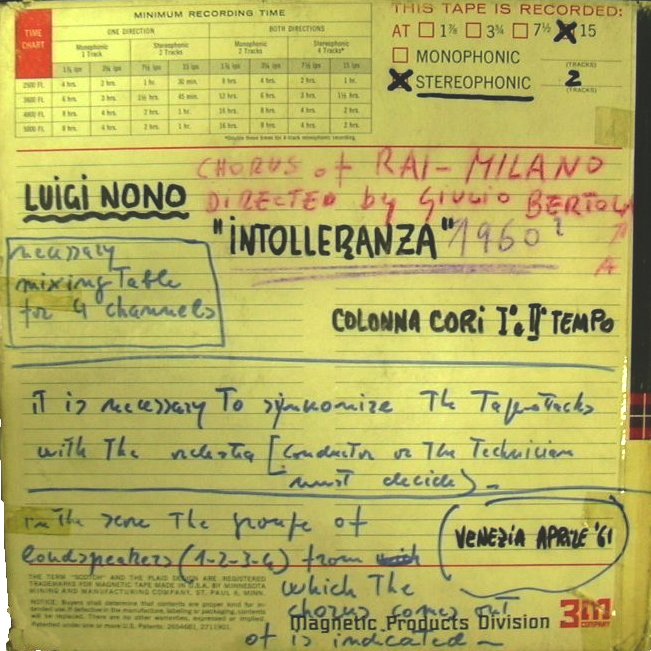 MINIMUM RECORDING TIME
TIME CHART
ONE DIRECTION BOTH DIRECTIONS
Monophonic 1 Track Stereophonic 2 Tracks Monophonic 2 Tracks Stereophonic 4 Tracks*
1⅞ ips 3¾ ips 7½ ips 15 ips 1⅞ ips 3¾ ips 7½ ips 15 ips
2500 Ft. 4 hrs. 2 hrs. 1 hr. 30 min. 8 hrs. 4 hrs. 2 hrs. 1 hr.
3600 Ft. 6 hrs. 3 hrs. 1½ hrs. 45 min. 12 hrs. 6 hrs. 3 hrs. 1½ hrs.
4800 Ft. 8 hrs. 4 hrs. 2 hrs. 1 hr. 16 hrs. 8 hrs. 4 hrs. 2 hrs.
5000 Ft. 8 hrs. 4 hrs. 2 hrs. 1 hr. 16 hrs. 8 hrs. 4 hrs. 2 hrs.
THIS TAPE IS RECORDED:
AT 1⅞ 3¾ 7½ 15
MONOPHONIC (TRACKS)
STEREOPHONIC 2 (TRACKS)
CHORUS of RAI-MILANO
LUIGI NONO
DIRECTED by GIULIO BERTOLA
"INTOLLERANZA" 1960
necessary
mixing Table
for 4 channels
COLONNA CORI I° e II° TEMPO
it is necessary To synkonize The Tape-tracks
with The orchestra [conductor or The Technician
must decide) -
in the score The groupe of
loudspeakers (1-2-3-4) from
which The
chorus comes out
of is indicated -
VENEZIA APRILE '61
THE TERM "SCOTCH" AND THE PLAID DESIGN ARE REGISTERED
TRADEMARKS FOR MAGNETIC TAPE MADE IN U.S.A. BY MINNESOTA
MINING AND MANUFACTURING COMPANY, ST. PAUL 6, MINN.
NOTICE: Buyers shall determine that contents are proper kind for in-
tended use. If defective in the manufacture, labeling or packaging, contents
will be replaced. There are no other warranties, expressed or implied.
Patented under one or more U.S. Patents: 2654681, 2711901.
Magnetic Products Division 3M COMPANY